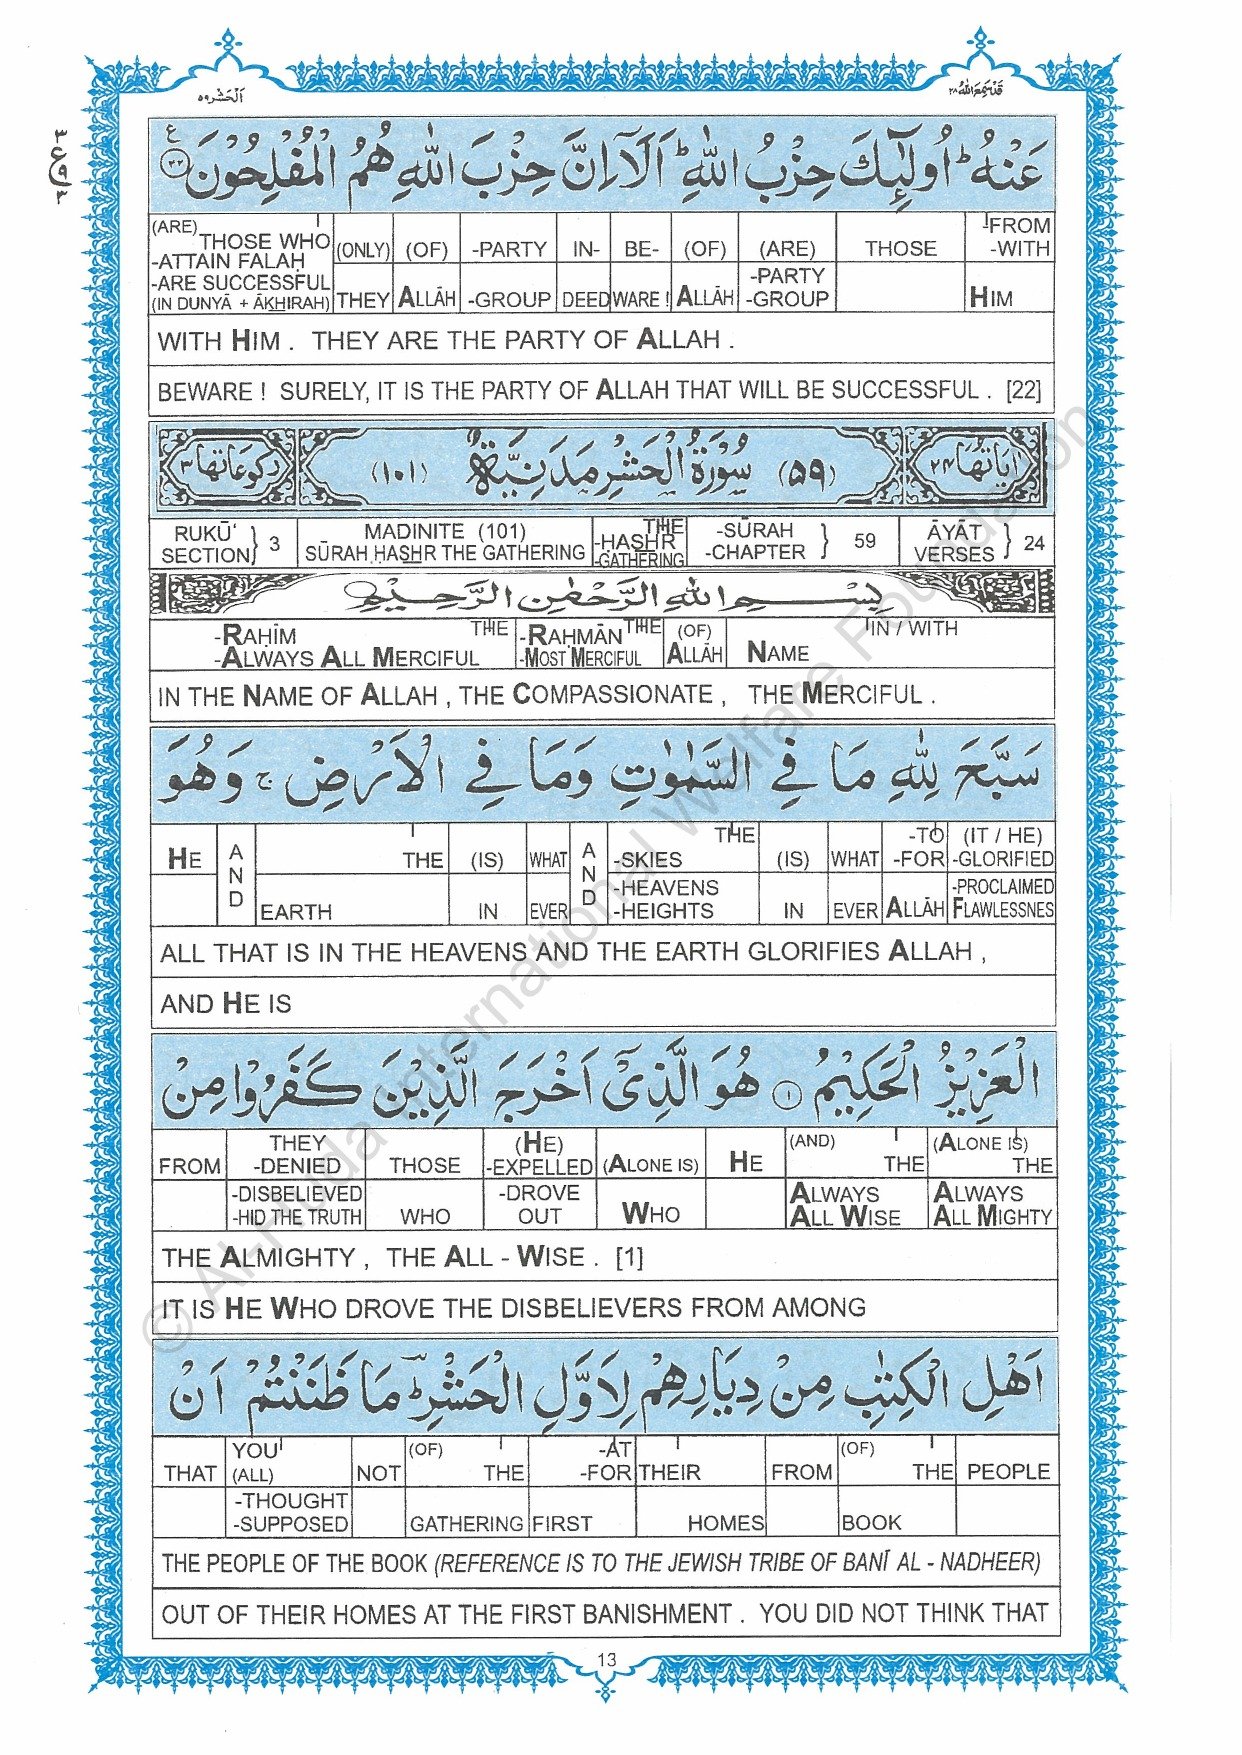 اَلْحَشْر ٥٩
قَدْسَمِعَ اللّٰهُ ٢٨
٣
ع
٩
٣
عَنْهُ ؕ اُولٰٓئِكَ حِزْبُ اللّٰهِ ؕ اَلَاۤ اِنَّ حِزْبَ اللّٰهِ هُمُ الْمُفْلِحُوْنَ ﴿٢٢﴾ ع
(ARE) THOSE WHO (ONLY) (OF) -PARTY IN- BE- (OF) (ARE) THOSE -FROM
-ATTAIN FALAḤ -WITH
-ARE SUCCESSFUL -PARTY
(IN DUNYĀ + ĀKHIRAH) THEY ALLĀH -GROUP DEED WARE ! ALLĀH -GROUP HIM
WITH HIM . THEY ARE THE PARTY OF ALLAH .
BEWARE ! SURELY, IT IS THE PARTY OF ALLAH THAT WILL BE SUCCESSFUL . [22]
اٰيَاتُهَا ٢٤ (٥٩) سُوْرَةُ الْحَشْرِ مَدَنِيَّةٌ (١٠١) رُكُوْعَاتُهَا ٣
RUKŪ‘ } 3 MADINITE (101) THE -SŪRAH } 59 ĀYĀT } 24
SECTION SŪRAH ḤASHR THE GATHERING -ḤASHR -CHAPTER VERSES
-GATHERING
بِسْمِ اللّٰهِ الرَّحْمٰنِ الرَّحِيْمِ
-RAHĪM THE -RAḤMĀN THE (OF) IN / WITH
-ALWAYS ALL MERCIFUL -MOST MERCIFUL ALLĀH NAME
IN THE NAME OF ALLAH , THE COMPASSIONATE , THE MERCIFUL .
سَبَّحَ لِلّٰهِ مَا فِي السَّمٰوٰتِ وَمَا فِي الْاَرْضِ ۚ وَهُوَ
HE AND THE (IS) WHAT AND THE (IS) WHAT -TO (IT / HE)
-SKIES -FOR -GLORIFIED
-HEAVENS -PROCLAIMED
EARTH IN EVER -HEIGHTS IN EVER ALLĀH FLAWLESSNES
ALL THAT IS IN THE HEAVENS AND THE EARTH GLORIFIES ALLAH ,
AND HE IS
الْعَزِيْزُ الْحَكِيْمُ ﴿١﴾ هُوَ الَّذِيْۤ اَخْرَجَ الَّذِيْنَ كَفَرُوْا مِنْ
THEY (HE) (AND) (ALONE IS)
FROM -DENIED THOSE -EXPELLED (ALONE IS) HE THE THE
-DISBELIEVED -DROVE ALWAYS ALWAYS
-HID THE TRUTH WHO OUT WHO ALL WISE ALL MIGHTY
THE ALMIGHTY , THE ALL - WISE . [1]
IT IS HE WHO DROVE THE DISBELIEVERS FROM AMONG
اَهْلِ الْكِتٰبِ مِنْ دِيَارِهِمْ لِاَوَّلِ الْحَشْرِ ؔؕ مَا ظَنَنْتُمْ اَنْ
YOU (OF) -AT (OF)
THAT (ALL) NOT THE -FOR THEIR FROM THE PEOPLE
-THOUGHT
-SUPPOSED GATHERING FIRST HOMES BOOK
THE PEOPLE OF THE BOOK (REFERENCE IS TO THE JEWISH TRIBE OF BANĪ AL - NADHEER)
OUT OF THEIR HOMES AT THE FIRST BANISHMENT . YOU DID NOT THINK THAT
13
© Al-Huda International Welfare Foundation